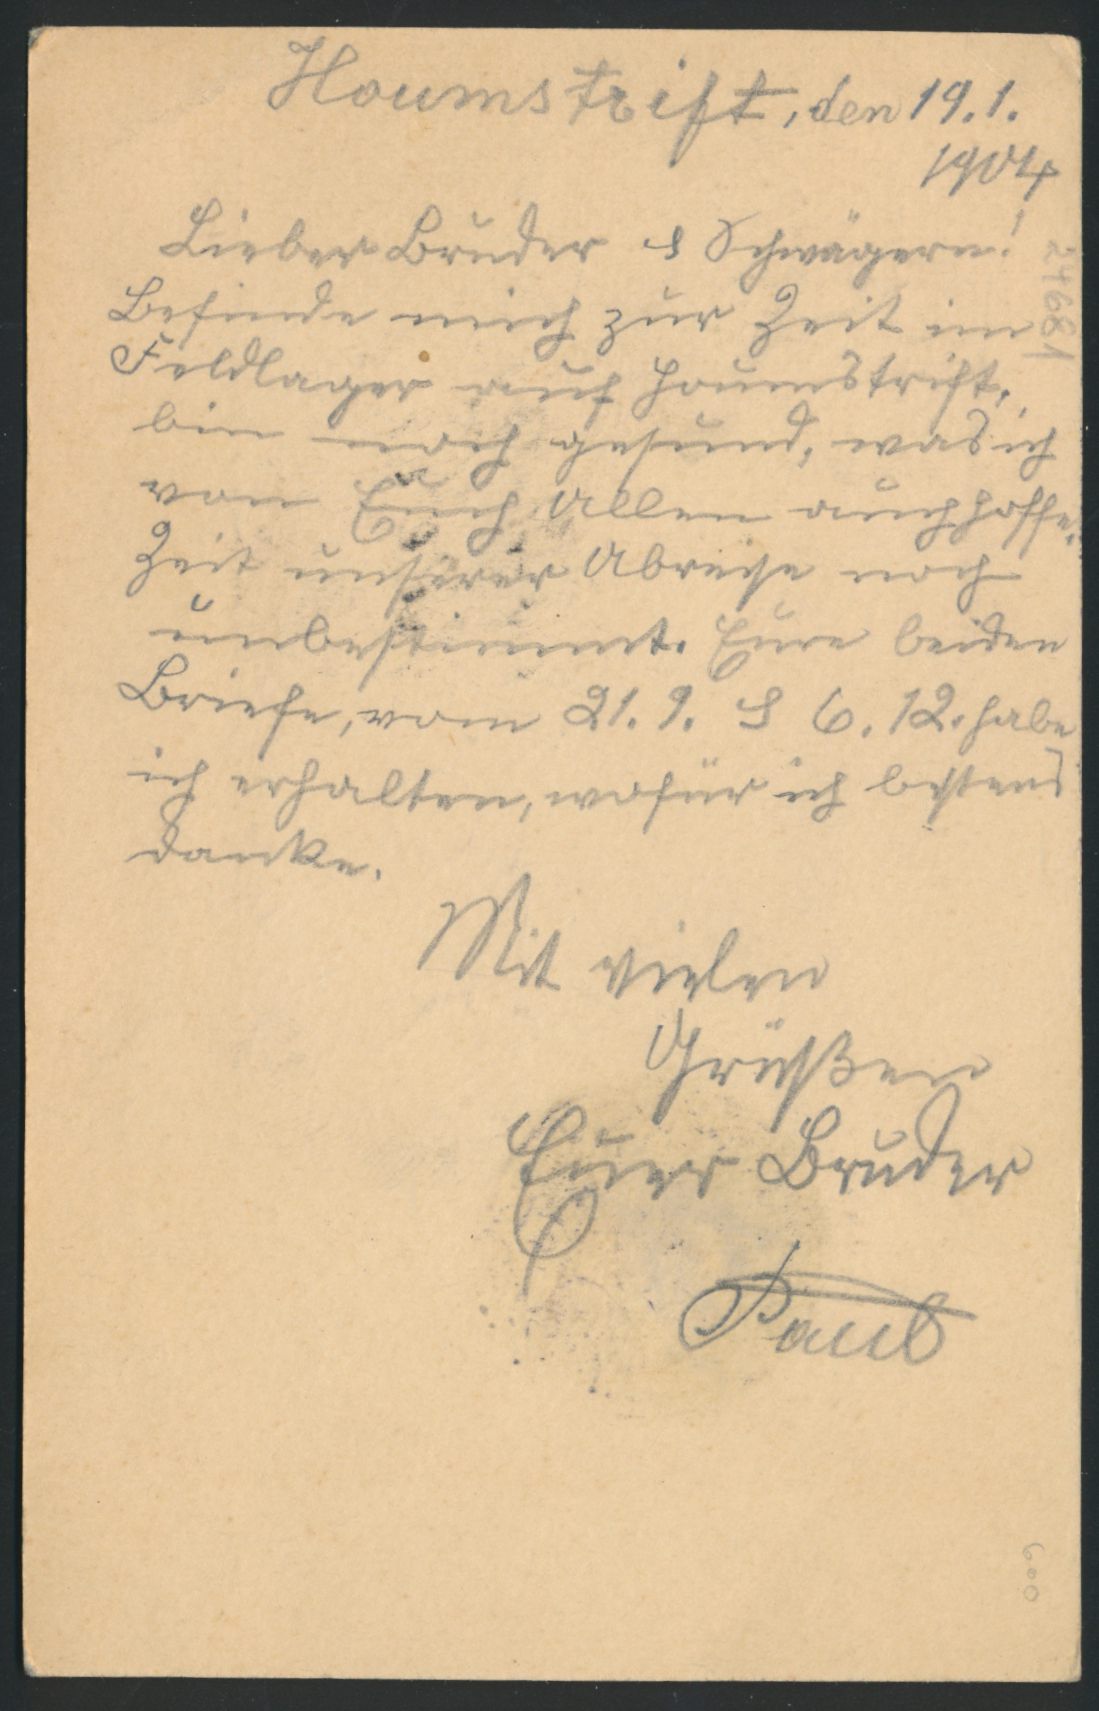 Houmstrift, den 19.1.
1904
Lieber Bruder & Schwägern!
Befinde mich zur Zeit im
Feldlager auf Houmstrift,
bin noch gesund, was ich
von Euch Allen auch hoffe.
Zeit unserer Abreise noch
unbestimmt. Eure beiden
Briefe, vom 21. 9. & 6. 12. habe
ich erhalten, wofür ich bestens
danke.
Mit vielen
Grüßen
Euer Bruder
Paul
24681
600